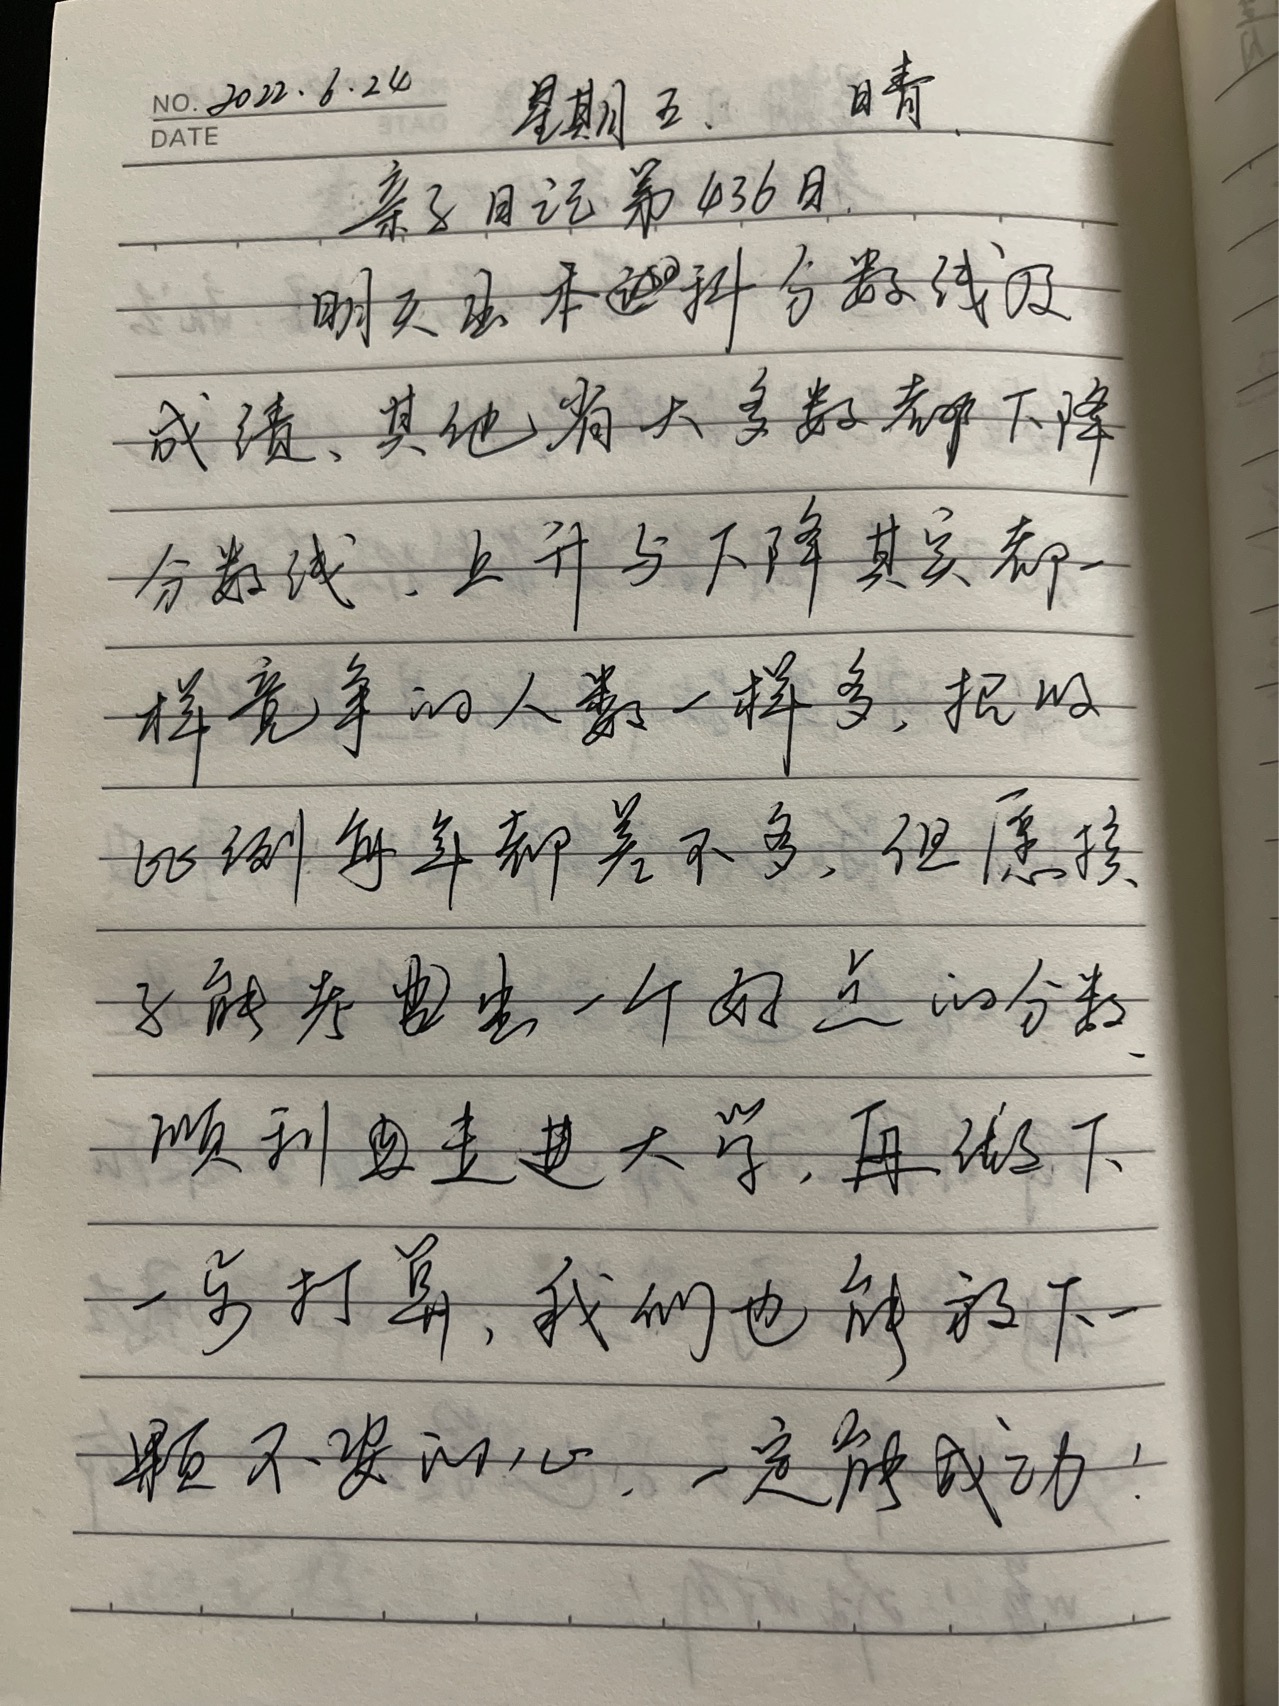 NO. 2022.6.24 星期五. 晴.
DATE
亲子日记第436日.
明天出本科分数线及
成绩、其他省大多数都下降
分数线、上升与下降其实都一
样竞争的人数一样多、招收
比例每年都差不多、但愿孩
子能考出一个好点的分数、
顺利走进大学,再做下
一步打算,我们也能放下一
颗不安的心、一定能成功!